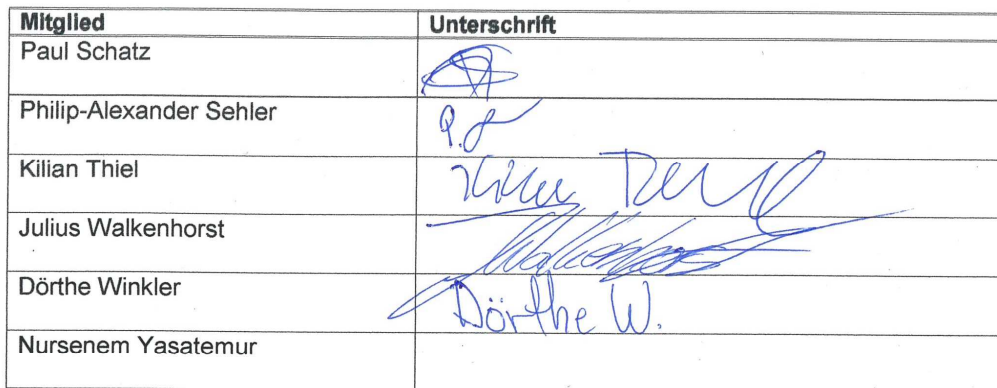 Mitglied Unterschrift
Paul Schatz
Philip-Alexander Sehler P.S
Kilian Thiel Kilian Thiel
Julius Walkenhorst Walkenhorst
Dörthe Winkler Dörthe W.
Nursenem Yasatemur